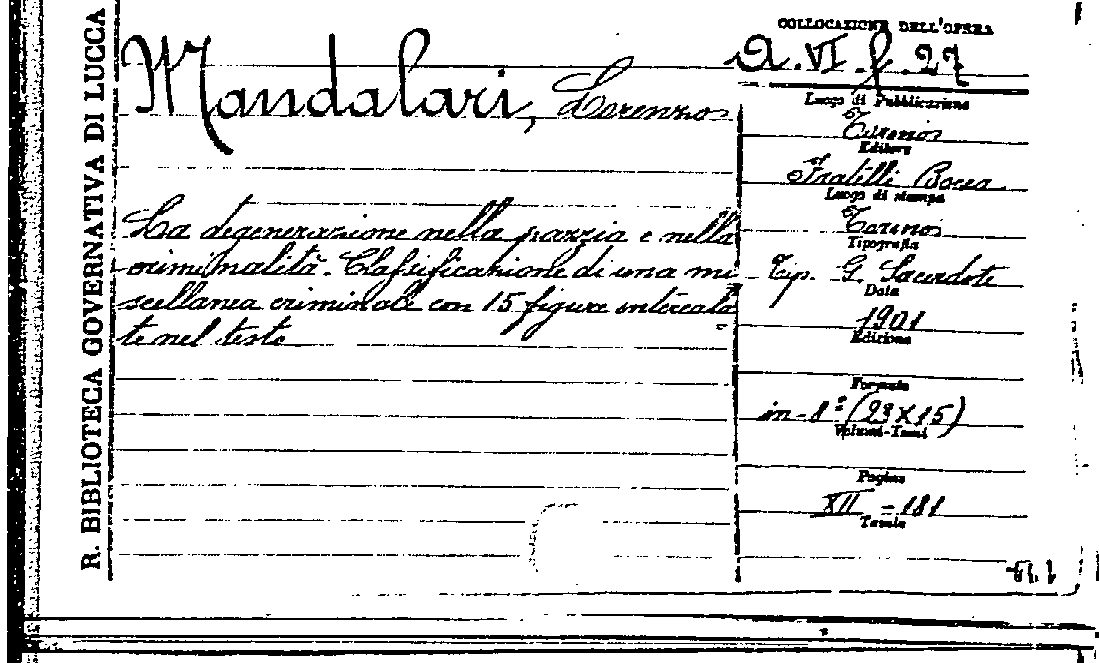 R. BIBLIOTECA GOVERNATIVA DI LUCCA
Mandalari, Lorenzo
La degenerazione nella pazzia e nella
criminalità. Classificazione di una mi
scellanea criminale con 15 figure intercala=
te nel testo
COLLOCAZIONE DELL'OPERA
A.VI.f.27
Luogo di Pubblicazione
Torino
Editore
Fratelli Bocca
Luogo di stampa
Torino
Tipografia
Tip. G. Sacerdote
Data
1901
Edizione
Formato
in-8º (23X15)
Volumi-Tomi
Pagine
XII - 181
Tavole